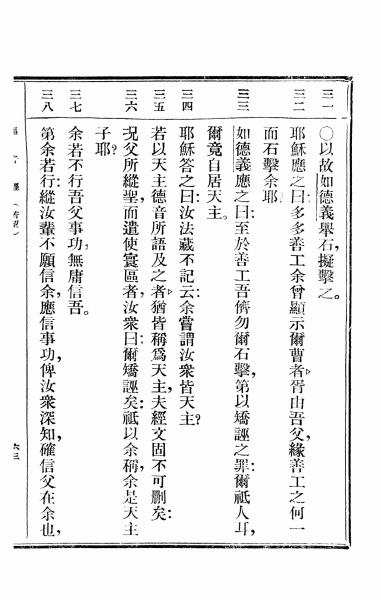 三一
○以故如德義舉石,擬擊之。
三二
耶穌應之曰:多多善工余曾顯示爾曹者,胥由吾父,緣善工之何一
而石擊余耶
三三
如德義應之曰:至於善工吾儕勿爾石擊,第以矯誣之罪:爾祗人耳,
爾竟自居天主。
三四
耶穌答之曰:汝法藏不記云:余嘗謂汝衆皆天主?
三五
若以天主德音所語及之者,猶皆稱爲天主,夫經文固不可刪矣:
三六
況父所縱聖,而遣使寰區者,汝衆曰:爾矯誣矣:祗以余稱,余是天主
子耶?
三七
余若不行吾父事功,無庸信吾。
三八
第余若行:縱汝輩不願信余,應信事功,俾汝衆深知,確信父在余也,
六三